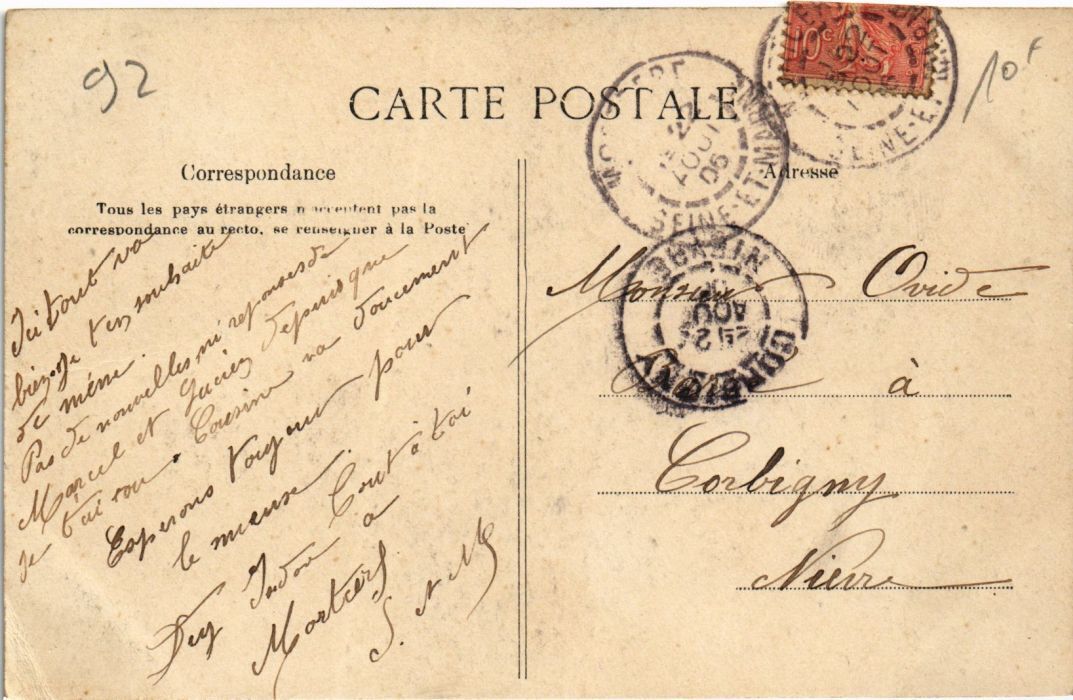 92
10F
10c
CARTE POSTALE
Correspondance
Adresse
Tous les pays étrangers n'acceptent pas la
correspondance au recto, se renseigner à la Poste
Ici tout va
bien je t'en souhaite
de même.
Pas de nouvelles ni reponses de
Marcel et Lucien depuis que
je t'ai vu. Cousin va doucement
Esperons toujours pour
le mieux. Tout à toi
à
Mortcerf
S. et M.
27
AOUT
06
SEINE-ET-MARNE
SEINE-ET-MARNE
CORBIGNY
NIEVRE
AOUT
Monsieur Ovide
à
Corbigny
Nièvre